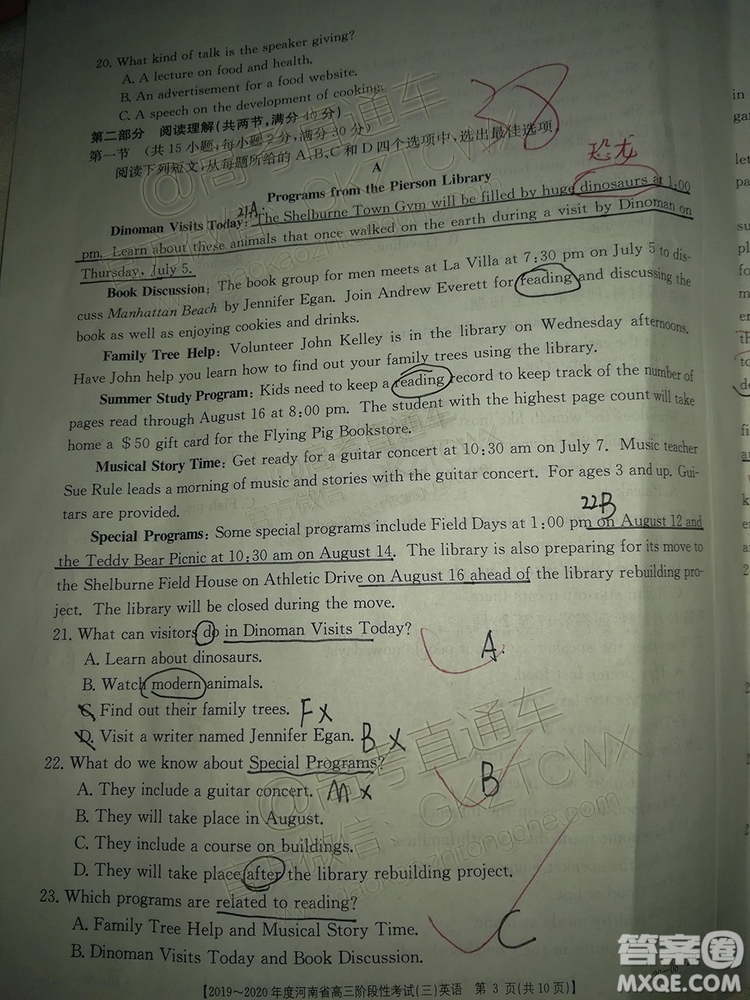 20. What kind of talk is the speaker giving?
A. A lecture on food and health.
B. An advertisement for a food website.
C. A speech on the development of cooking.
38
第二部分 阅读理解(共两节,满分40分)
第一节 (共15小题;每小题2分,满分30分)
阅读下列短文,从每题所给的A、B、C和D四个选项中,选出最佳选项。
恐龙
A
Programs from the Pierson Library
21A
Dinoman Visits Today: The Shelburne Town Gym will be filled by huge dinosaurs at 1:00
pm. Learn about these animals that once walked on the earth during a visit by Dinoman on
Thursday, July 5.
Book Discussion: The book group for men meets at La Villa at 7:30 pm on July 5 to dis-
cuss Manhattan Beach by Jennifer Egan. Join Andrew Everett for reading and discussing the
book as well as enjoying cookies and drinks.
Family Tree Help: Volunteer John Kelley is in the library on Wednesday afternoons.
Have John help you learn how to find out your family trees using the library.
Summer Study Program: Kids need to keep a reading record to keep track of the number of
pages read through August 16 at 8:00 pm. The student with the highest page count will take
home a $50 gift card for the Flying Pig Bookstore.
Musical Story Time: Get ready for a guitar concert at 10:30 am on July 7. Music teacher
Sue Rule leads a morning of music and stories with the guitar concert. For ages 3 and up. Gui-
tars are provided.
22B
Special Programs: Some special programs include Field Days at 1:00 pm on August 12 and
the Teddy Bear Picnic at 10:30 am on August 14. The library is also preparing for its move to
the Shelburne Field House on Athletic Drive on August 16 ahead of the library rebuilding pro-
ject. The library will be closed during the move.
21. What can visitors do in Dinoman Visits Today?
A. Learn about dinosaurs. A
B. Watch modern animals.
C. Find out their family trees. F x
D. Visit a writer named Jennifer Egan. B x
22. What do we know about Special Programs?
A. They include a guitar concert. M x B
B. They will take place in August.
C. They include a course on buildings.
D. They will take place after the library rebuilding project.
23. Which programs are related to reading?
A. Family Tree Help and Musical Story Time. C
B. Dinoman Visits Today and Book Discussion.
【2019～2020年度河南省高三阶段性考试(三)英语 第3页(共10页)】
@高考直通车
官方微信:GKZTCWX
gaokaozhitongche.com
答案圈
MXQE.COM